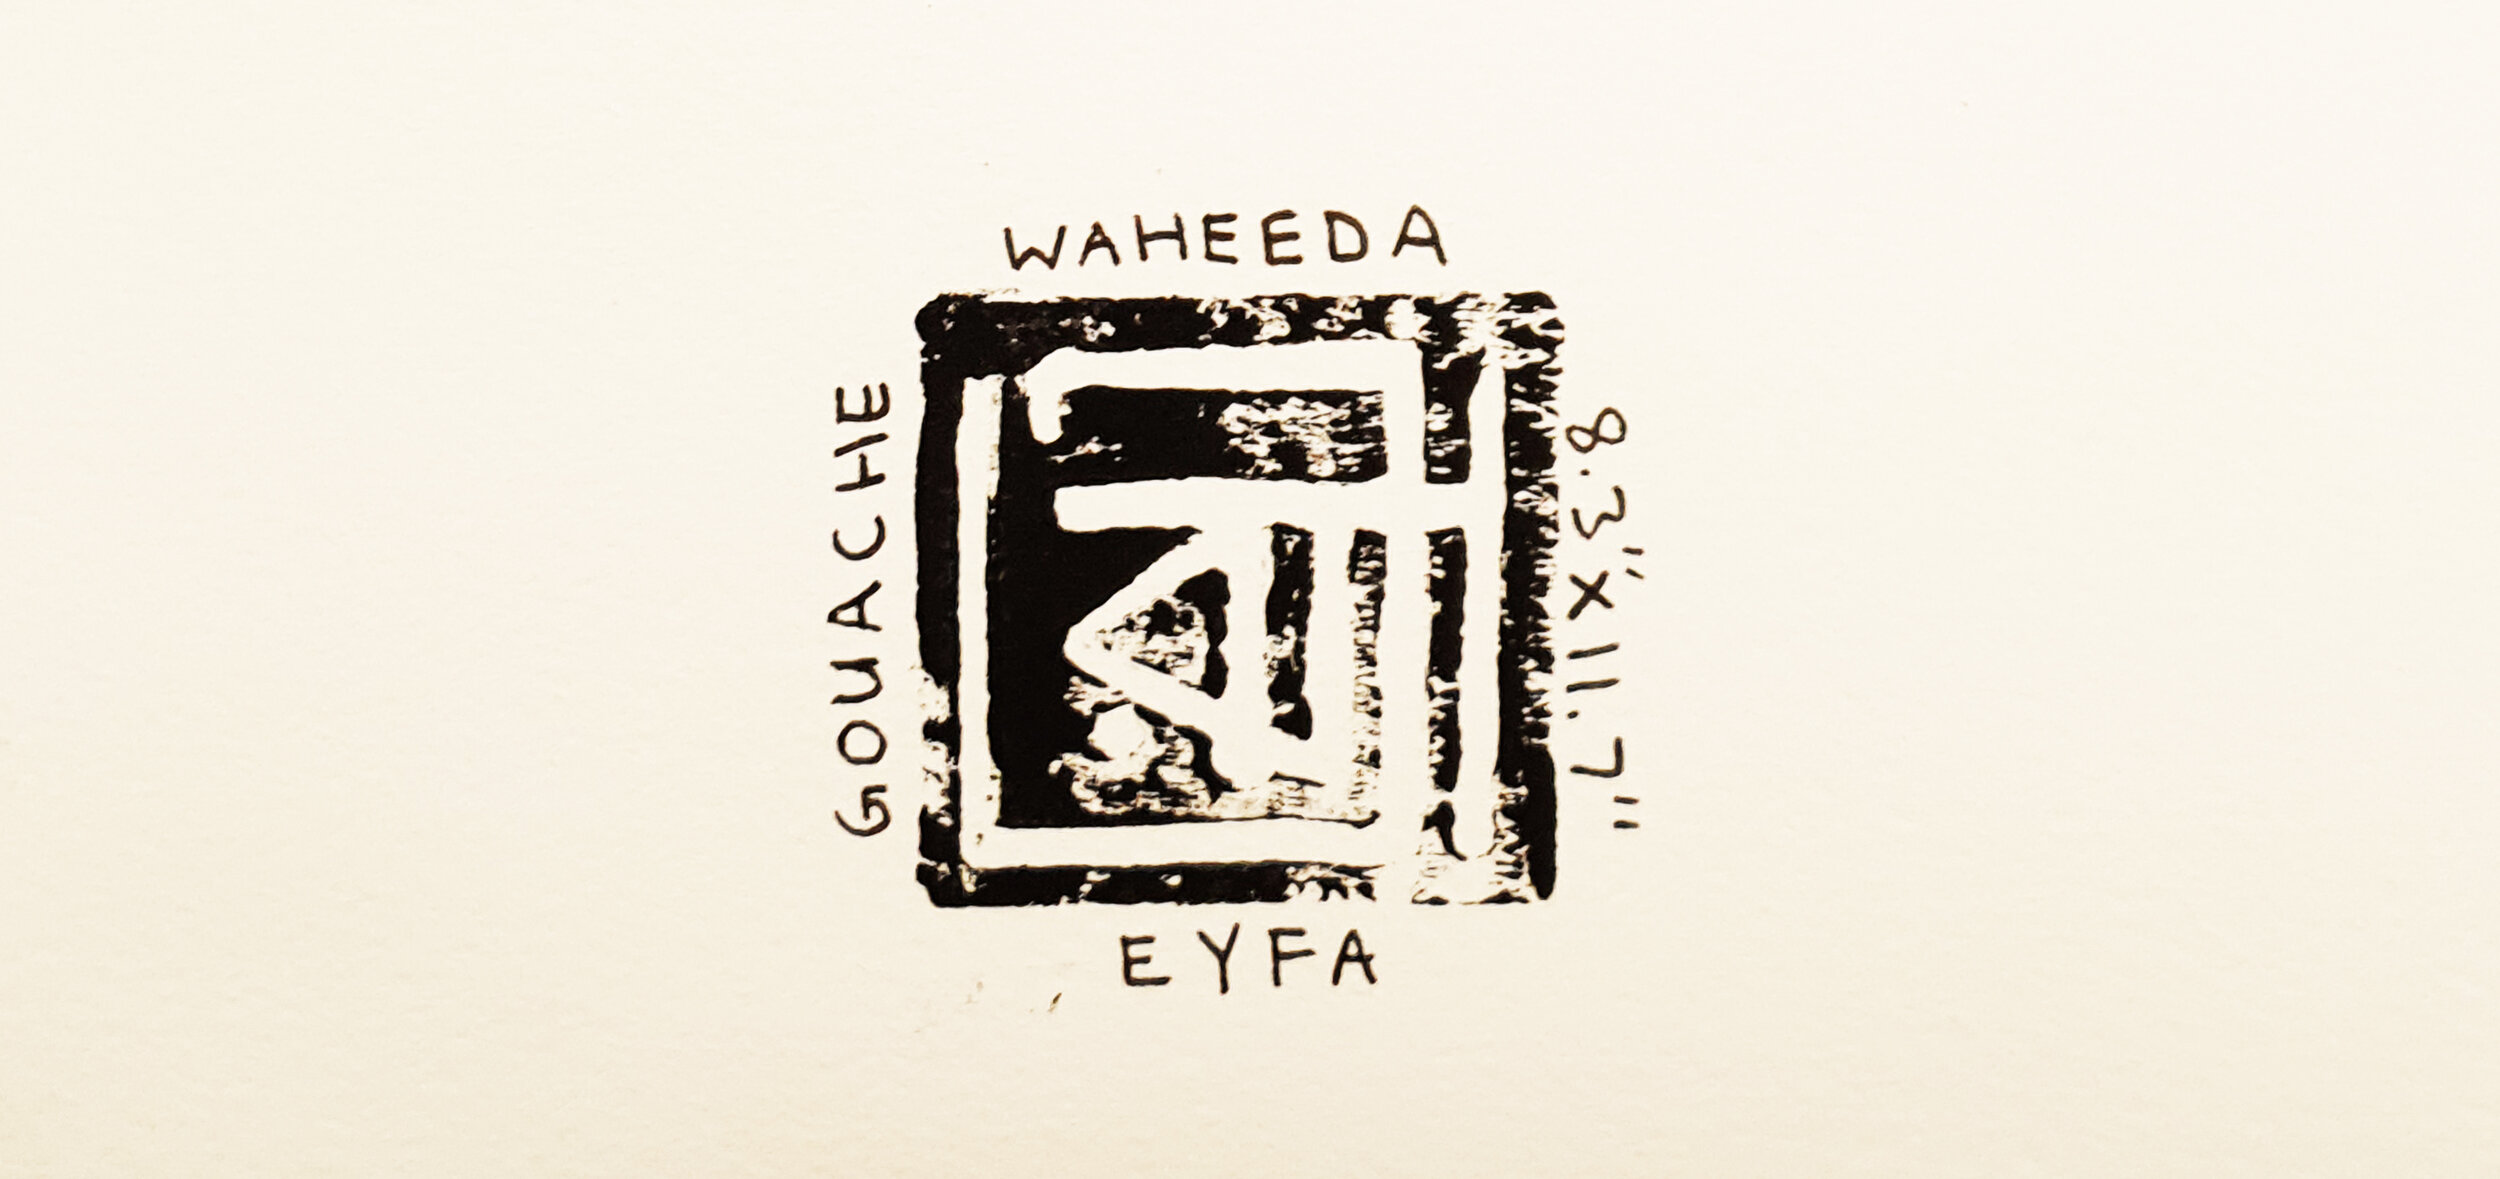 WAHEEDA
GOUACHE
8.3" X 11.7"
EYFA